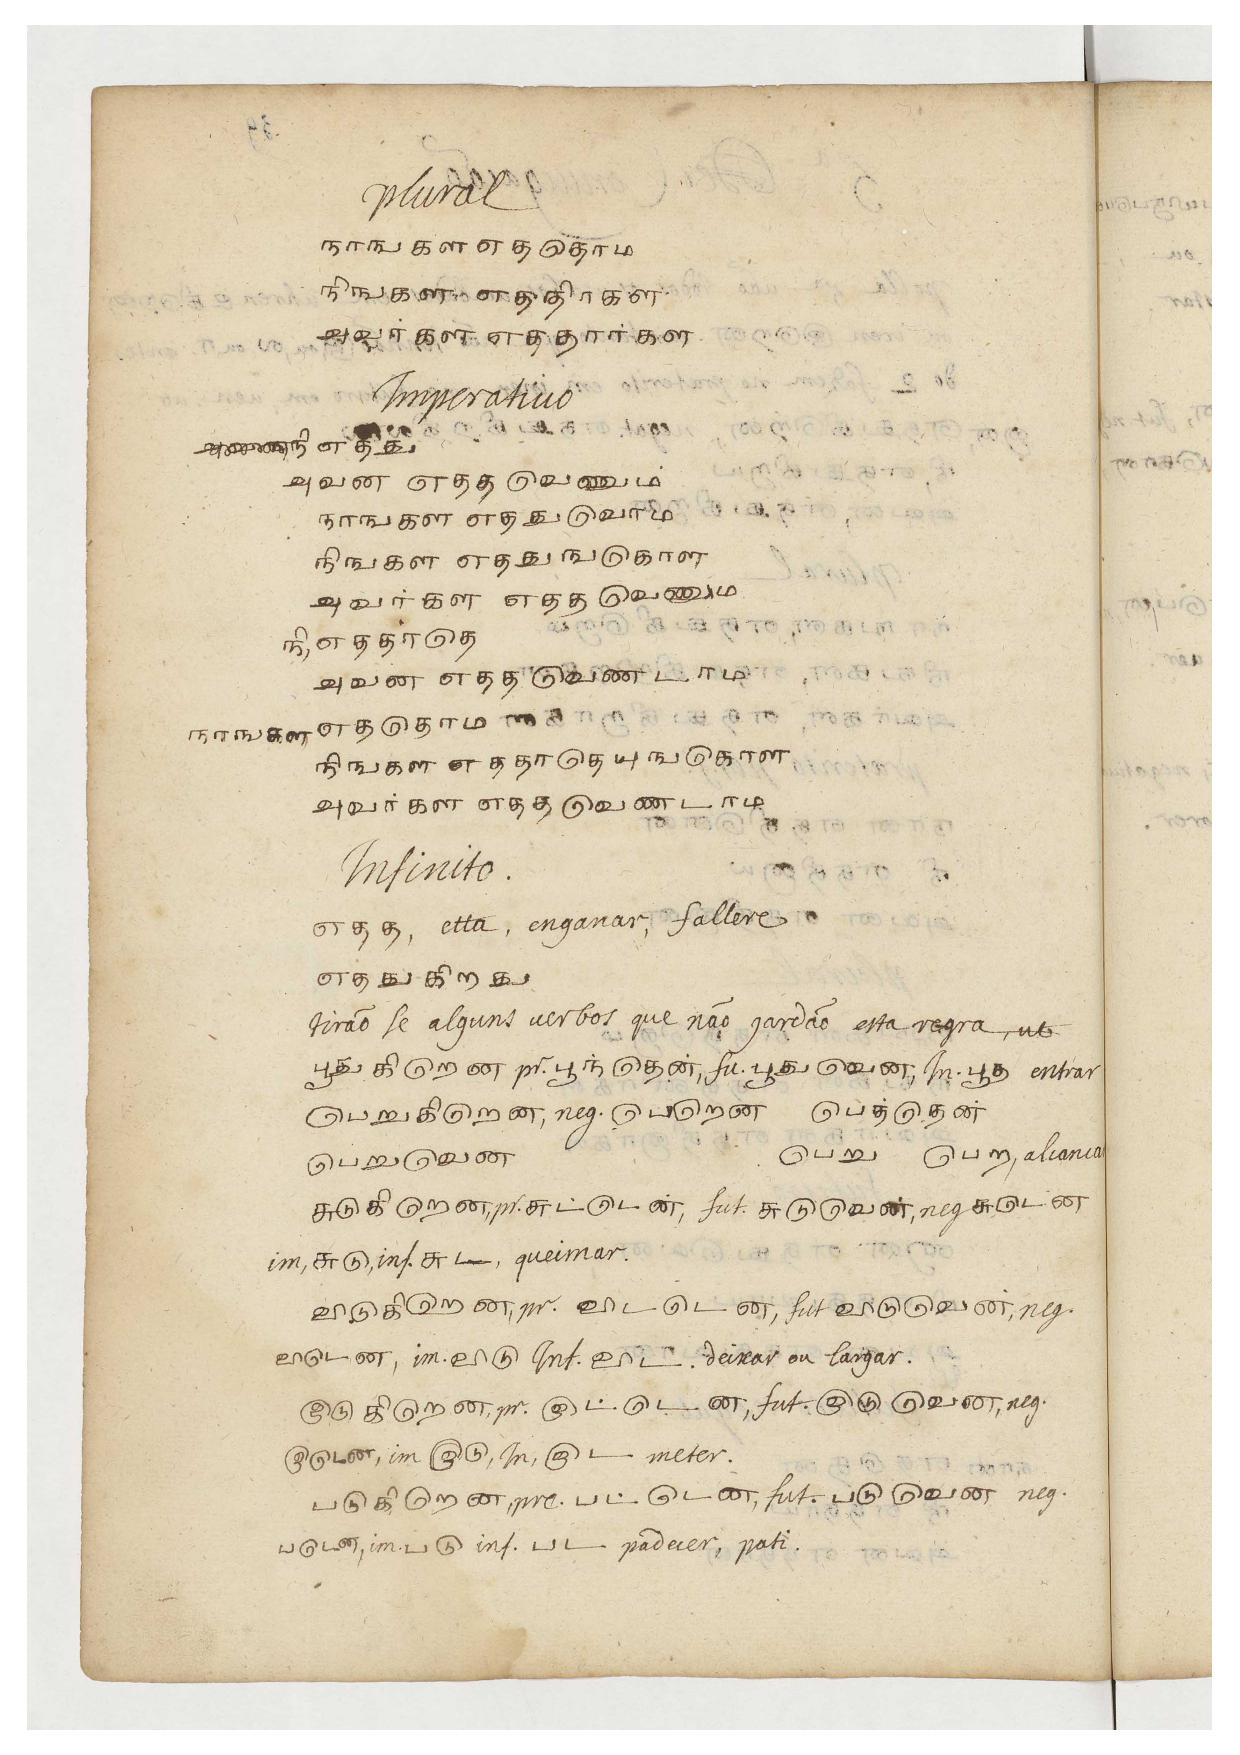 plural
நாஙகள எதடுதாம
நிஙகள எததிாகள
அவர்கள எததார்கள
Imperatiuo
நி எதது
அவன எதத டுவணும்
நாஙகள எததுடுவாம
நிஙகள எததுஙடுகாள
அவர்கள எதத டுவணும
நி, எததாடுத
அவன எதத டுவணடாம
நாஙகள எதடுதாம
நிஙகள எததாடுதயுஙடுகாள
அவர்கள எதத டுவணடாம
Infinito.
எதத, etta, enganar, fallere
எதது கிறது
tirão se alguns uerbos que não gardão esta regra, ut
பூது கிடுறன pr. பூந்டுதன், fu. பூதுடுவன, In. பூத entrar
டுபறுகிடுறன, neg. டுபடுறன டுபத்டுதன்
டுபறுடுவன டுபறு டுபற,
சுடுகிடுறன, pr. சுட்டுடன், fut. சுடுடுவன், neg சுடுடன
im, சுடு, inf. சுட, queimar.
விடுகிடுறன, pr. விடடுடன, fut விடுடுவன், neg.
விடுடன, im. விடு Inf. விட. deixar ou largar.
இடுகிடுறன, pr. இட்டுடன, fut. இடுடுவன, neg.
இடுடன, im இடு, In, இட meter.
படுகிடுறன, pre. பட்டுடன, fut. படுடுவன neg.
படுடன, im. படு inf. பட padecer, pati.